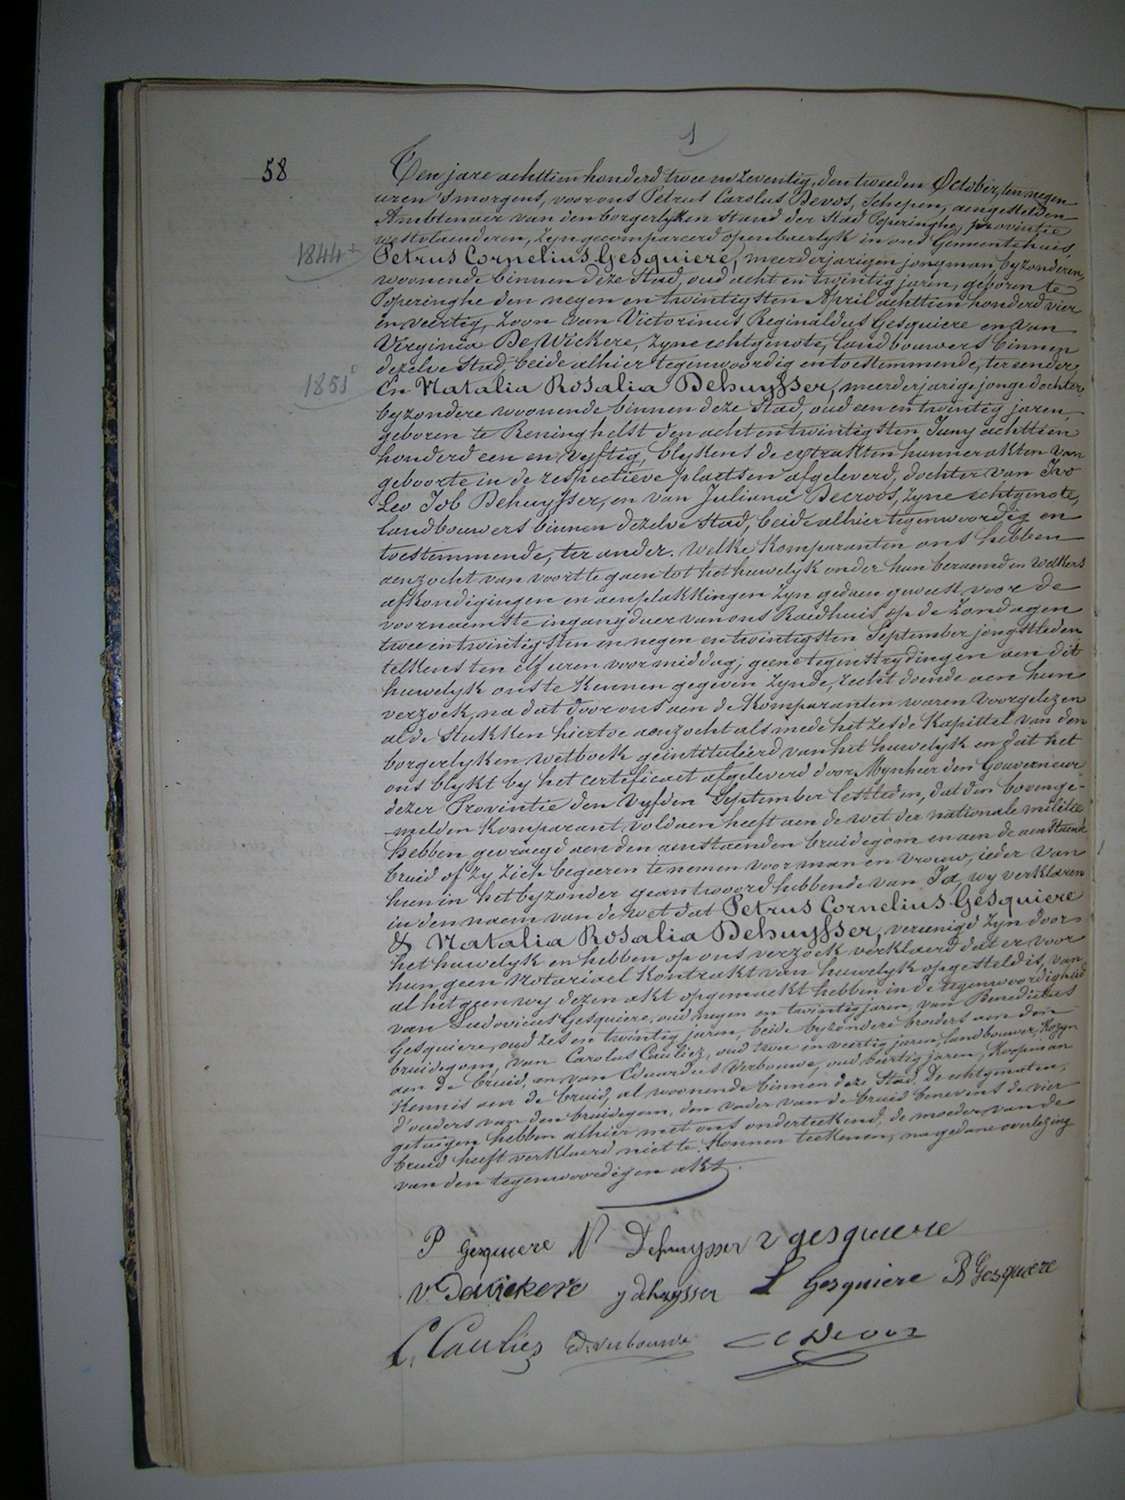 1
58
Ten jare achttien honderd twee en zeventig, den tweeden October, ten negen
uren 's morgens, voor ons Petrus Carolus Devos, Schepen, aengestelden
Ambtenaer van den borgerlyken Stand der Stad Poperinghe, provintie
westvlaenderen, zyn gecompareerd openbaerlyk in ons Gemeentehuis,
1844
Petrus Cornelius Gesquiere, meerderjarigen jongman, byzonderen,
woonende binnen deze Stad, oud acht en twintig jaren, geboren te
Poperinghe den negen en twintigsten April achttien honderd vier
en veertig, Zoon van Victorinus Reginaldus Gesquiere en van
Virginia De Wickere, zyne echtgenote, landbouwers binnen
dezelve Stad, beide alhier tegenwoordig en toestemmende, ter eender;
1851
En Natalia Rosalia Dehuysser, meerderjarige jonge dochter,
byzondere woonende binnen deze Stad, oud een en twintig jaren,
geboren te Reninghelst den acht en twintigsten Juny achttien
honderd een en vyftig, blykens de extrakten hunner akten van
geboorte in de respectieve plaetsen afgeleverd, dochter van Ivo
Leo Job Dehuysser, en van Juliana Decroos, zyne echtgenote,
landbouwers binnen dezelve Stad, beide alhier tegenwoordig en
toestemmende, ter ander. Welke Komparanten ons hebben
aenzocht van voort te gaen tot het huwelyk onder hun beraemd en welkers
afkondigingen en aenplakkingen zyn gedaen geweest voor de
voornaemste ingangdeur van ons Raedhuis op de Zondagen
twee en twintigsten en negen en twintigsten September jongstleden
telkens ten elf uren voormiddag; geene tegenstrydingen aen dit
huwelyk ons te kennen gegeven zynde, recht doende aen hun
verzoek, na dat door ons aen de Komparanten waren voorgelezen
al de Stukken hiertoe aenzocht als mede het zesde Kapittel van den
borgerlyken wetboek geintituleerd van het huwelyk en dat het
ons blykt by het certificaet afgeleverd door Mynheer den Gouverneur
dezer Provintie den vyfden September lestleden, dat den bovenge-
melden Komparant voldaen heeft aen de wet der nationale militie
hebben gevraegd aen den aenstaenden bruidegom en aen de aenstaende
bruid of zy zich begeeren te nemen voor man en vrouw, ieder van
hun in het byzonder geantwoord hebbende van Ja, wy verklaren
in den naem van de wet dat Petrus Cornelius Gesquiere
& Natalia Rosalia Dehuysser, vereenigd zyn door
het huwelyk en hebben op ons verzoek verklaerd dat er voor
hun geen Notarieel Kontrakt van huwelyk opgesteld is, van
al het geen wy dezen akt opgemaekt hebben in de tegenwoordigheid
van Ludovicus Gesquiere, oud negen en twintig jaren, van Benedictus
Gesquiere, oud zes en twintig jaren, beide byzondere broeders aen den
bruidegom, van Carolus Cauliez, oud twee en veertig jaren, landbouwer, Kozyn
aen de bruid, en van Eduardus Verbouwe, oud veertig jaren, Koopman
Kennis aen de bruid, al woonende binnen deze Stad. De echtgenoten,
d'ouders van den bruidegom, den vader van de bruid benevens de vier
getuigen hebben alhier met ons onderteekend, de moeder van de
bruid heeft verklaerd niet te Konnen teekenen, na gedane overlezing
van den tegenwoordigen akt.
P Gesquiere N Dehuysser v gesquiere
v. Dewickere j dehuysser L Gesquiere B Gesquiere
C. Cauliez Ed. verbouwe C Devos